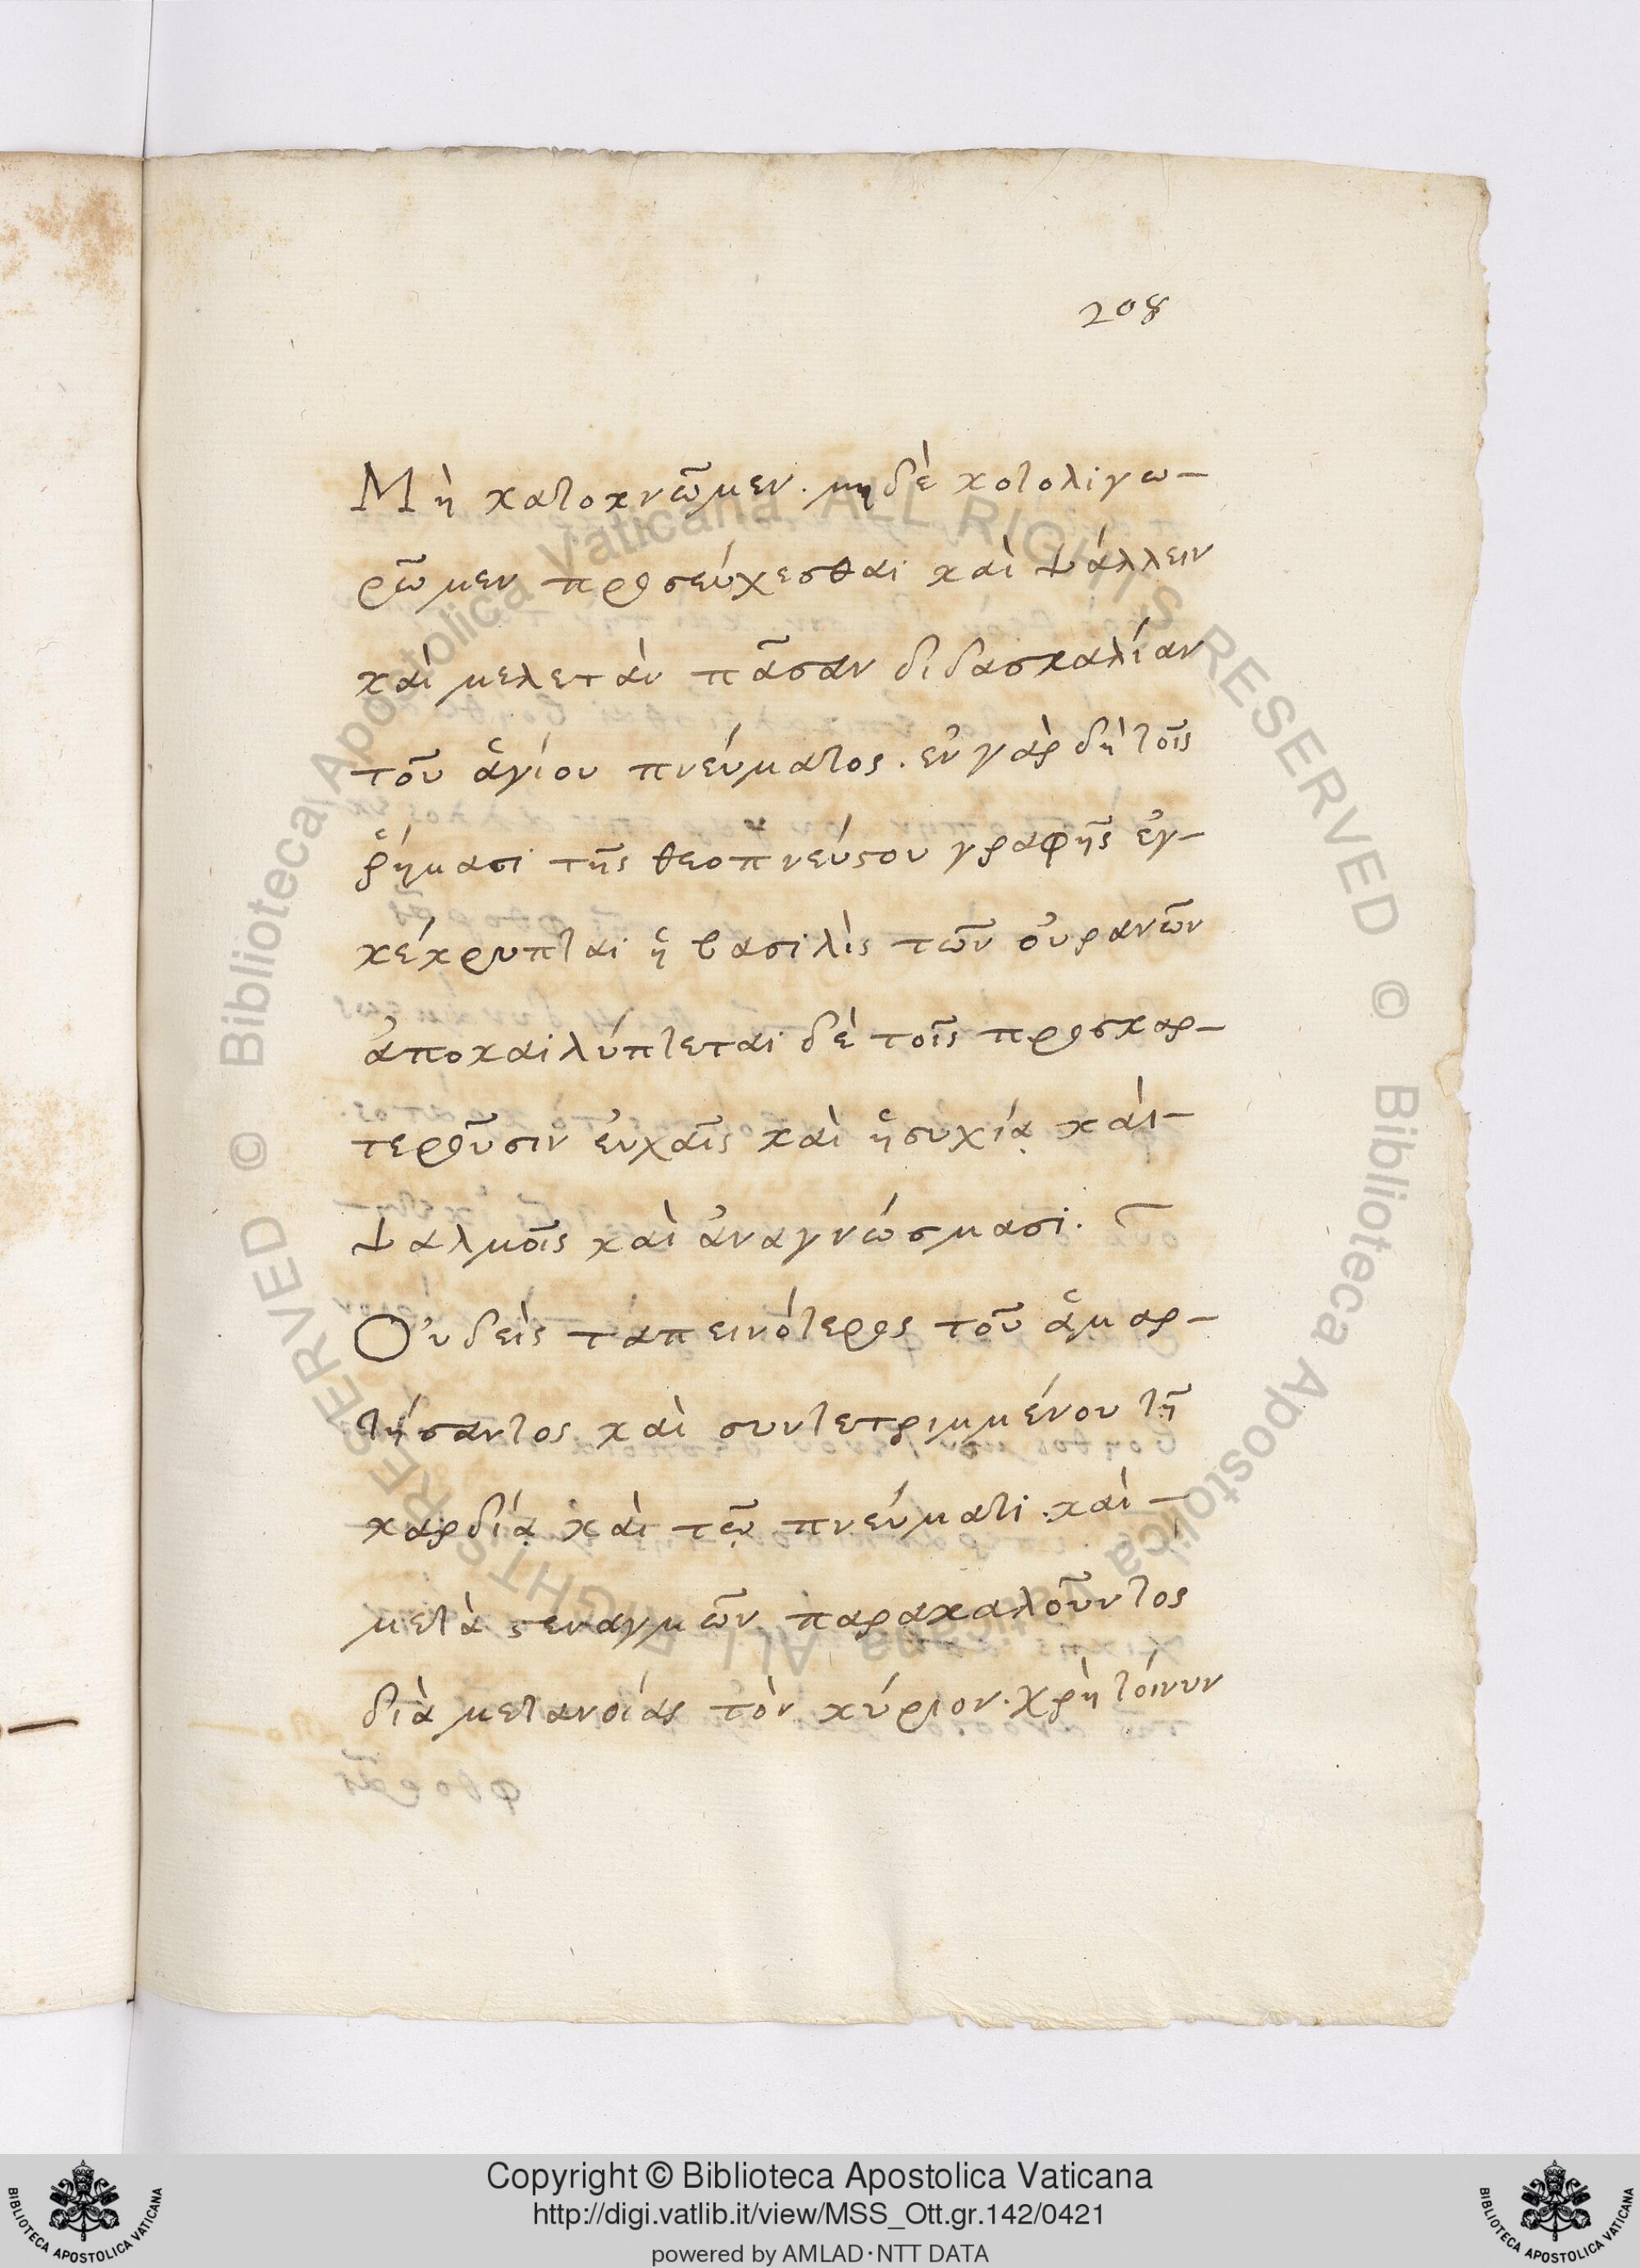 208
Μὴ κατοκνῶμεν. μηδὲ κοτολιγω-
ρῶμεν προσεύχεσθαι καὶ ψάλλειν
καὶ μελετὰν πᾶσαν διδασκαλίαν
τοῦ ἁγίου πνεύματος. ἐν γὰρ δὴ τοῖς
ῥήμασι τῆς θεοπνεύϛου γραφῆς ἐγ-
κέκρυπται ἡ βασιλὶς τῶν οὐρανῶν
ἀποκαιλύπτεται δὲ τοῖς προσκαρ-
τεροῦσιν εὐχαῖς καὶ ἡσυχίᾳ καὶ-
ψαλμοῖς καὶ ἀναγνώσμασι.
Οὐδεὶς ταπεινότερος τοῦ ἁμαρ-
τήσαντος καὶ συντετριμμένου τῇ
καρδίᾳ καὶ τῷ πνεύματι. καὶ-
μετὰ ϛεναγμῶν παρακαλοῦντος
διὰ μετανοίας τὸν κύριον. χρὴ τοίνυν
© Biblioteca Apostolica Vaticana ALL RIGHTS RESERVED © Biblioteca Apostolica Vaticana ALL RIGHTS RESERVED
Copyright © Biblioteca Apostolica Vaticana
http://digi.vatlib.it/view/MSS_Ott.gr.142/0421
powered by AMLAD·NTT DATA
BIBLIOTECA APOSTOLICA VATICANA
BIBLIOTECA APOSTOLICA VATICANA